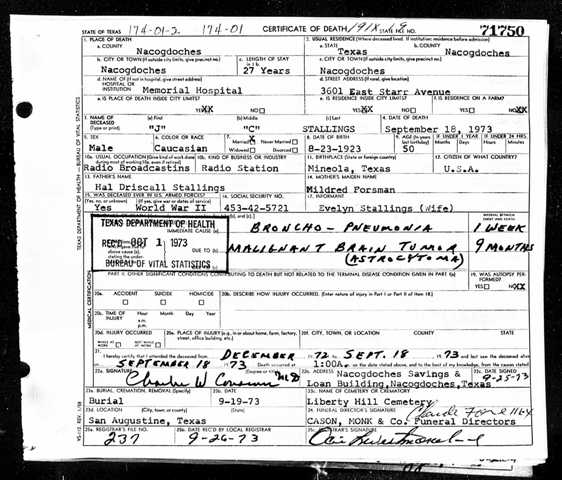 STATE OF TEXAS 174-01-2 174-01 CERTIFICATE OF DEATH 191X 19 STATE FILE NO. 71750
1. PLACE OF DEATH
a. COUNTY
Nacogdoches
2. USUAL RESIDENCE (Where deceased lived. If institution: residence before admission)
a. STATE
Texas
b. COUNTY
Nacogdoches
b. CITY OR TOWN (If outside city limits, give precinct no.)
Nacogdoches
c. LENGTH OF STAY
in 1 b.
27 Years
c. CITY OR TOWN (If outside city limits, give precinct no.)
Nacogdoches
d. NAME OF (If not in hospital, give street address)
HOSPITAL OR
INSTITUTION
Memorial Hospital
d. STREET ADDRESS (If rural, give location)
3601 East Starr Avenue
e. IS PLACE OF DEATH INSIDE CITY LIMITS?
YES XX NO
e. IS RESIDENCE INSIDE CITY LIMITS?
YES XX NO
f. IS RESIDENCE ON A FARM?
YES NO XX
3. NAME OF
DECEASED
(Type or print)
(a) First
"J"
(b) Middle
"C"
(c) Last
STALLINGS
4. DATE OF DEATH
September 18, 1973
5. SEX
Male
6. COLOR OR RACE
Caucasian
7. Married Never Married
Widowed Divorced
8. DATE OF BIRTH
8-23-1923
9. AGE (In years last birthday)
50
IF UNDER 1 YEAR
Months Days
IF UNDER 24 HRS.
Hours Minutes
10a. USUAL OCCUPATION (Give kind of work done during most of working life, even if retired)
Radio Broadcastins
10b. KIND OF BUSINESS OR INDUSTRY
Radio Station
11. BIRTHPLACE (State or foreign country)
Mineola, Texas
12. CITIZEN OF WHAT COUNTRY?
U.S.A.
13. FATHER'S NAME
Hal Driscall Stallings
14. MOTHER'S MAIDEN NAME
Mildred Forsman
15. WAS DECEASED EVER IN U.S. ARMED FORCES?
(Yes, no, or unknown) (If yes, give war or dates of service)
Yes World War II
16. SOCIAL SECURITY NO.
453-42-5721
17. INFORMANT
Evelyn Stallings (Wife)
INTERVAL BETWEEN
ONSET AND DEATH
TEXAS DEPARTMENT OF HEALTH
REC'D OCT 1 1973
BUREAU OF VITAL STATISTICS
IMMEDIATE CAUSE (a)
BRONCHO-PNEUMONIA 1 WEEK
DUE TO (b)
MALIGNANT BRAIN TUMOR 9 MONTHS
(ASTROCYTOMA)
above cause (a),
stating the under-
DUE TO (c)
PART II. OTHER SIGNIFICANT CONDITIONS CONTRIBUTING TO DEATH BUT NOT RELATED TO THE TERMINAL DISEASE CONDITION GIVEN IN PART I(a)
19. WAS AUTOPSY PERFORMED?
YES NO XX
20a.
ACCIDENT SUICIDE HOMICIDE
20b. DESCRIBE HOW INJURY OCCURRED. (Enter nature of injury in Part I or Part II of item 18.)
20c. TIME OF
INJURY
Hour Month Day Year
a.m.
p.m.
20d. INJURY OCCURRED
WHILE AT WORK NOT WHILE AT WORK
20e. PLACE OF INJURY (e.g., in or about home, farm, factory, street, office building, etc.)
20f. CITY, TOWN, OR LOCATION COUNTY STATE
21. I hereby certify that I attended the deceased from DECEMBER 72 to SEPT. 18 73 and last saw the deceased alive
on SEPTEMBER 18 73 Death occurred at 1:00A m. on the date stated above, and to the best of my knowledge, from the causes stated.
22a. SIGNATURE
MD
22b. ADDRESS
Nacogdoches Savings &
Loan Building, Nacogdoches, Texas
22c. DATE SIGNED
9-25-73
23a. BURIAL, CREMATION, REMOVAL (Specify)
Burial
23b. DATE
9-19-73
23c. NAME OF CEMETERY OR CREMATORY
Liberty Hill Cemetery
23d. LOCATION (City, town, or county) (State)
San Augustine, Texas
24. FUNERAL DIRECTOR'S SIGNATURE
CASON, MONK & Co. Funeral Directors
25a. REGISTRAR'S FILE NO.
237
25b. DATE REC'D BY LOCAL REGISTRAR
9-26-73
25c. REGISTRAR'S SIGNATURE
TEXAS DEPARTMENT OF HEALTH — BUREAU OF VITAL STATISTICS
MEDICAL CERTIFICATION
VS-112 REV. 1/58